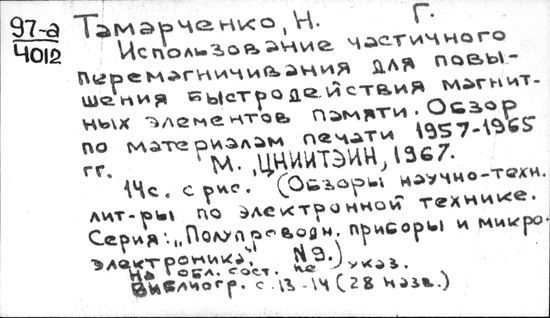 97-а
4012
Тамарченко, Н. Г.
Использование частичного
перемагничивания для повы-
шения быстродействия магнит-
ных элементов памяти. Обзор
по материалам печати 1957-1965
гг. М., ЦНИИТЭИН, 1967.
14с. с рис. (Обзоры научно-техн.
лит-ры по электронной технике.
Серия: „Полупроводн. приборы и микро-
электроника." N9.)
На обл. сост. не указ.
Библиогр. с. 13-14 (28 назв.)